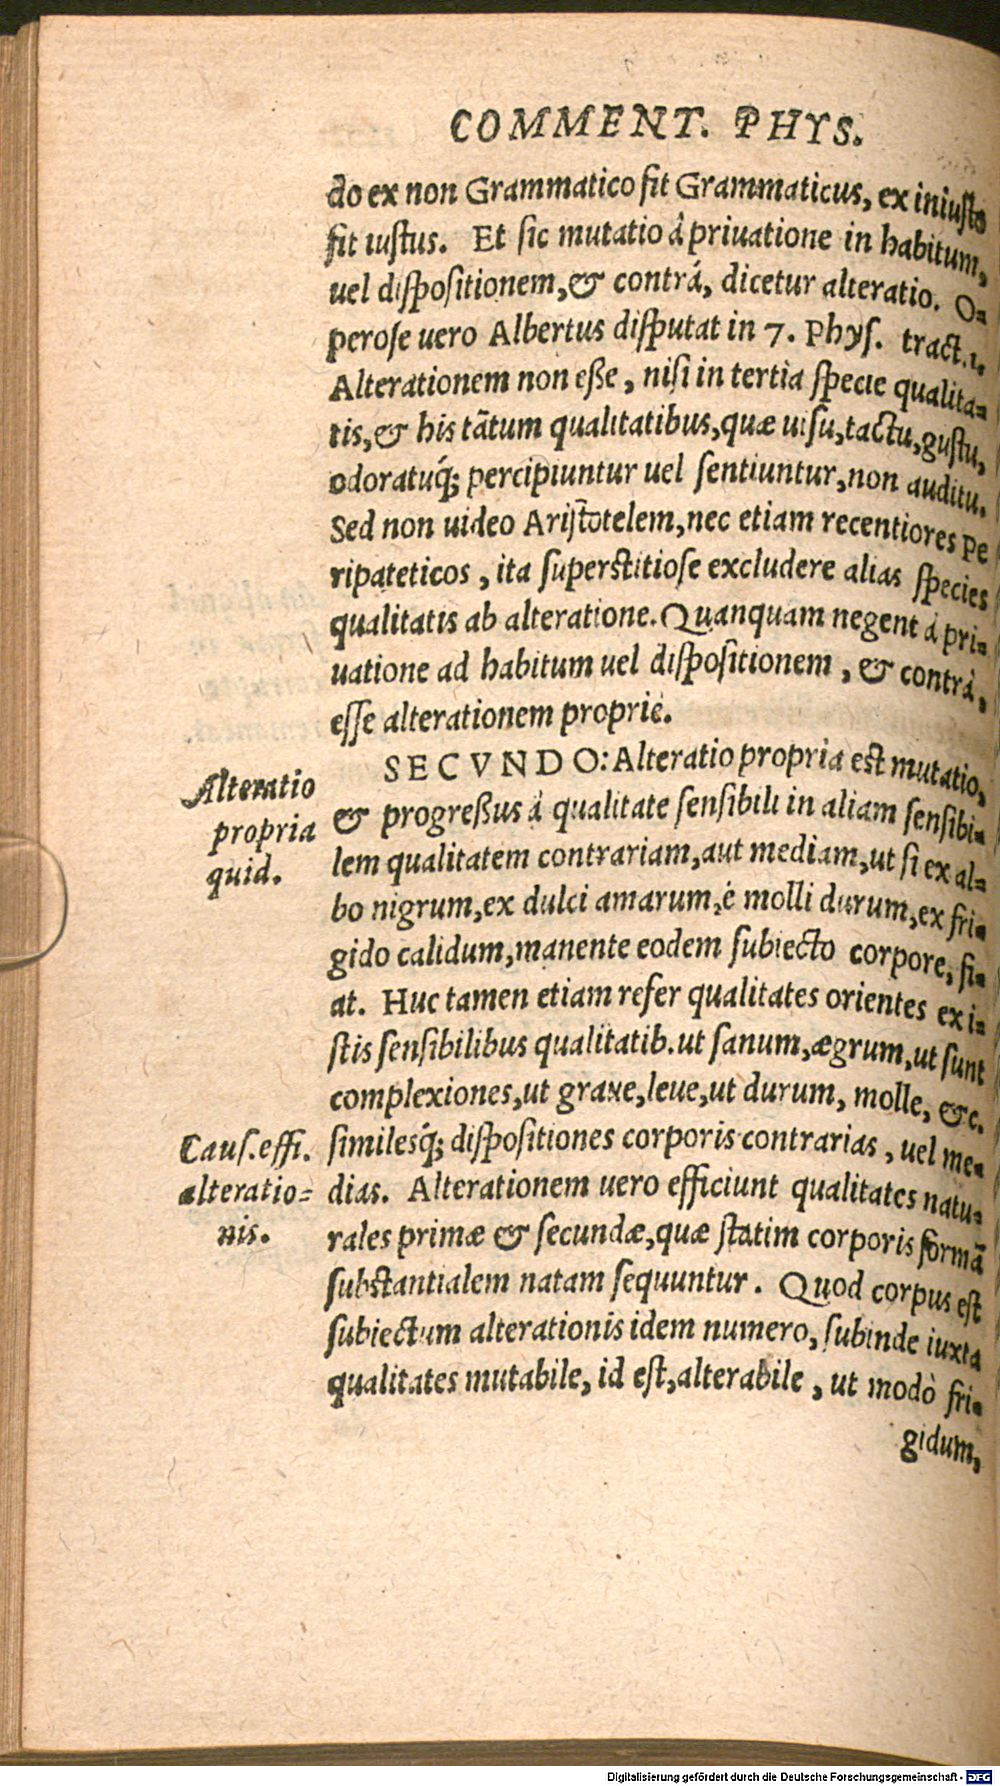 COMMENT. PHYS.
do ex non Grammatico fit Grammaticus, ex iniusto
fit iustus. Et sic mutatio à priuatione in habitum,
uel dispositionem, & contrá, dicetur alteratio. O-
perose uero Albertus disputat in 7. Phys. tract. 1.
Alterationem non esse, nisi in tertia specie qualita-
tis, & his tãtum qualitatibus, quæ uisu, tactu, gustu,
odoratuq́; percipiuntur uel sentiuntur, non auditu.
Sed non uideo Aristotelem, nec etiam recentiores Pe
ripateticos, ita superstitiose excludere alias species
qualitatis ab alteratione. Quanquam negent à pri-
uatione ad habitum uel dispositionem, & contrà,
esse alterationem proprie.
SECVNDO: Alteratio propria est mutatio,
& progressus à qualitate sensibili in aliam sensibi-
lem qualitatem contrariam, aut mediam, ut si ex al-
bo nigrum, ex dulci amarum, è molli durum, ex fri-
gido calidum, manente eodem subiecto corpore, fi-
at. Huc tamen etiam refer qualitates orientes ex i-
stis sensibilibus qualitatib. ut sanum, ægrum, ut sunt
complexiones, ut graue, leue, ut durum, molle, &c.
similesq́; dispositiones corporis contrarias, uel me-
dias. Alterationem uero efficiunt qualitates natu-
rales primæ & secundæ, quæ statim corporis formã
substantialem natam sequuntur. Quod corpus est
subiectum alterationis idem numero, subinde iuxta
qualitates mutabile, id est, alterabile, ut modò fri-
gidum,
Alteratio
propria
quid.
Caus. effi.
alteratio-
nis.
Digitalisierung gefördert durch die Deutsche Forschungsgemeinschaft - DFG